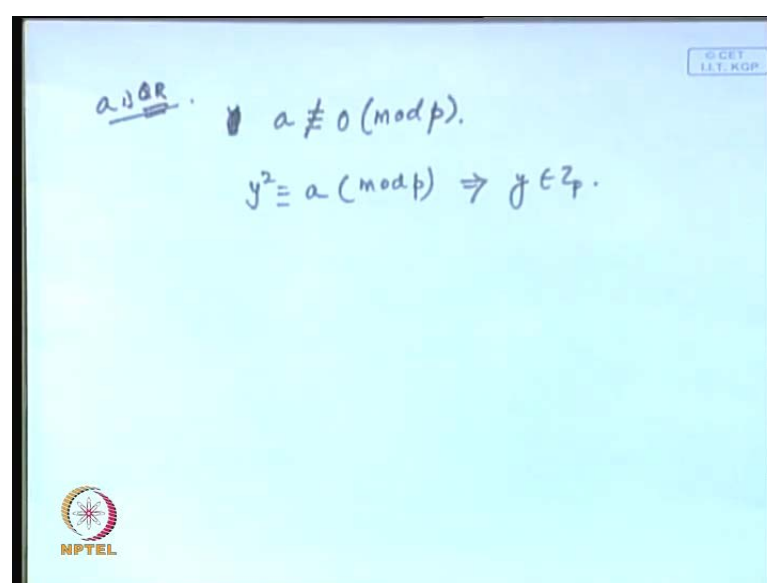 © CET
I.I.T. KGP
a is QR.
a ≢ 0 (mod p).
y² ≡ a (mod p) ⇒ y ∈ Zp.
NPTEL